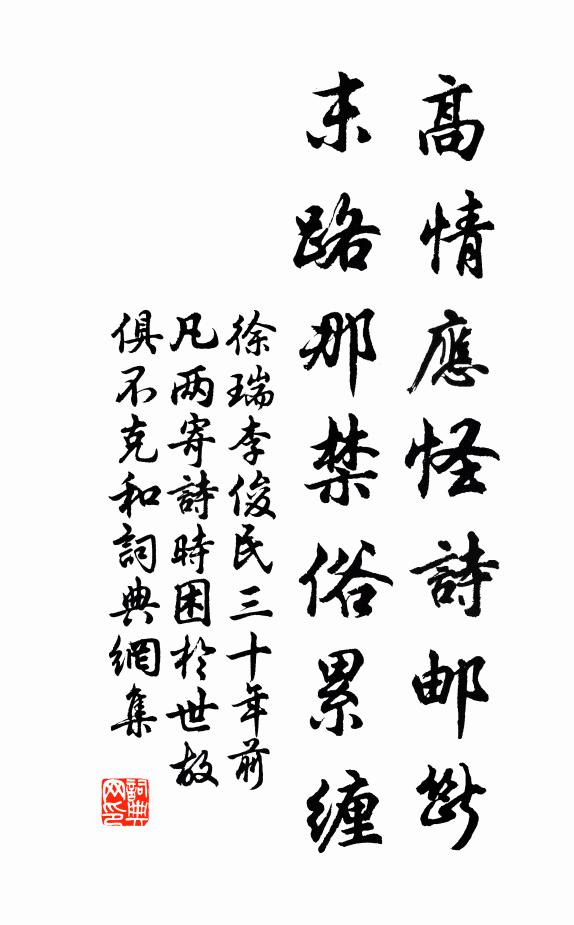 高情應怪詩邮斷
末路那禁俗累纏
徐瑞李俊民三十年前
凡两寄詩時困於世故
俱不克和詞典網集
詞典
网印